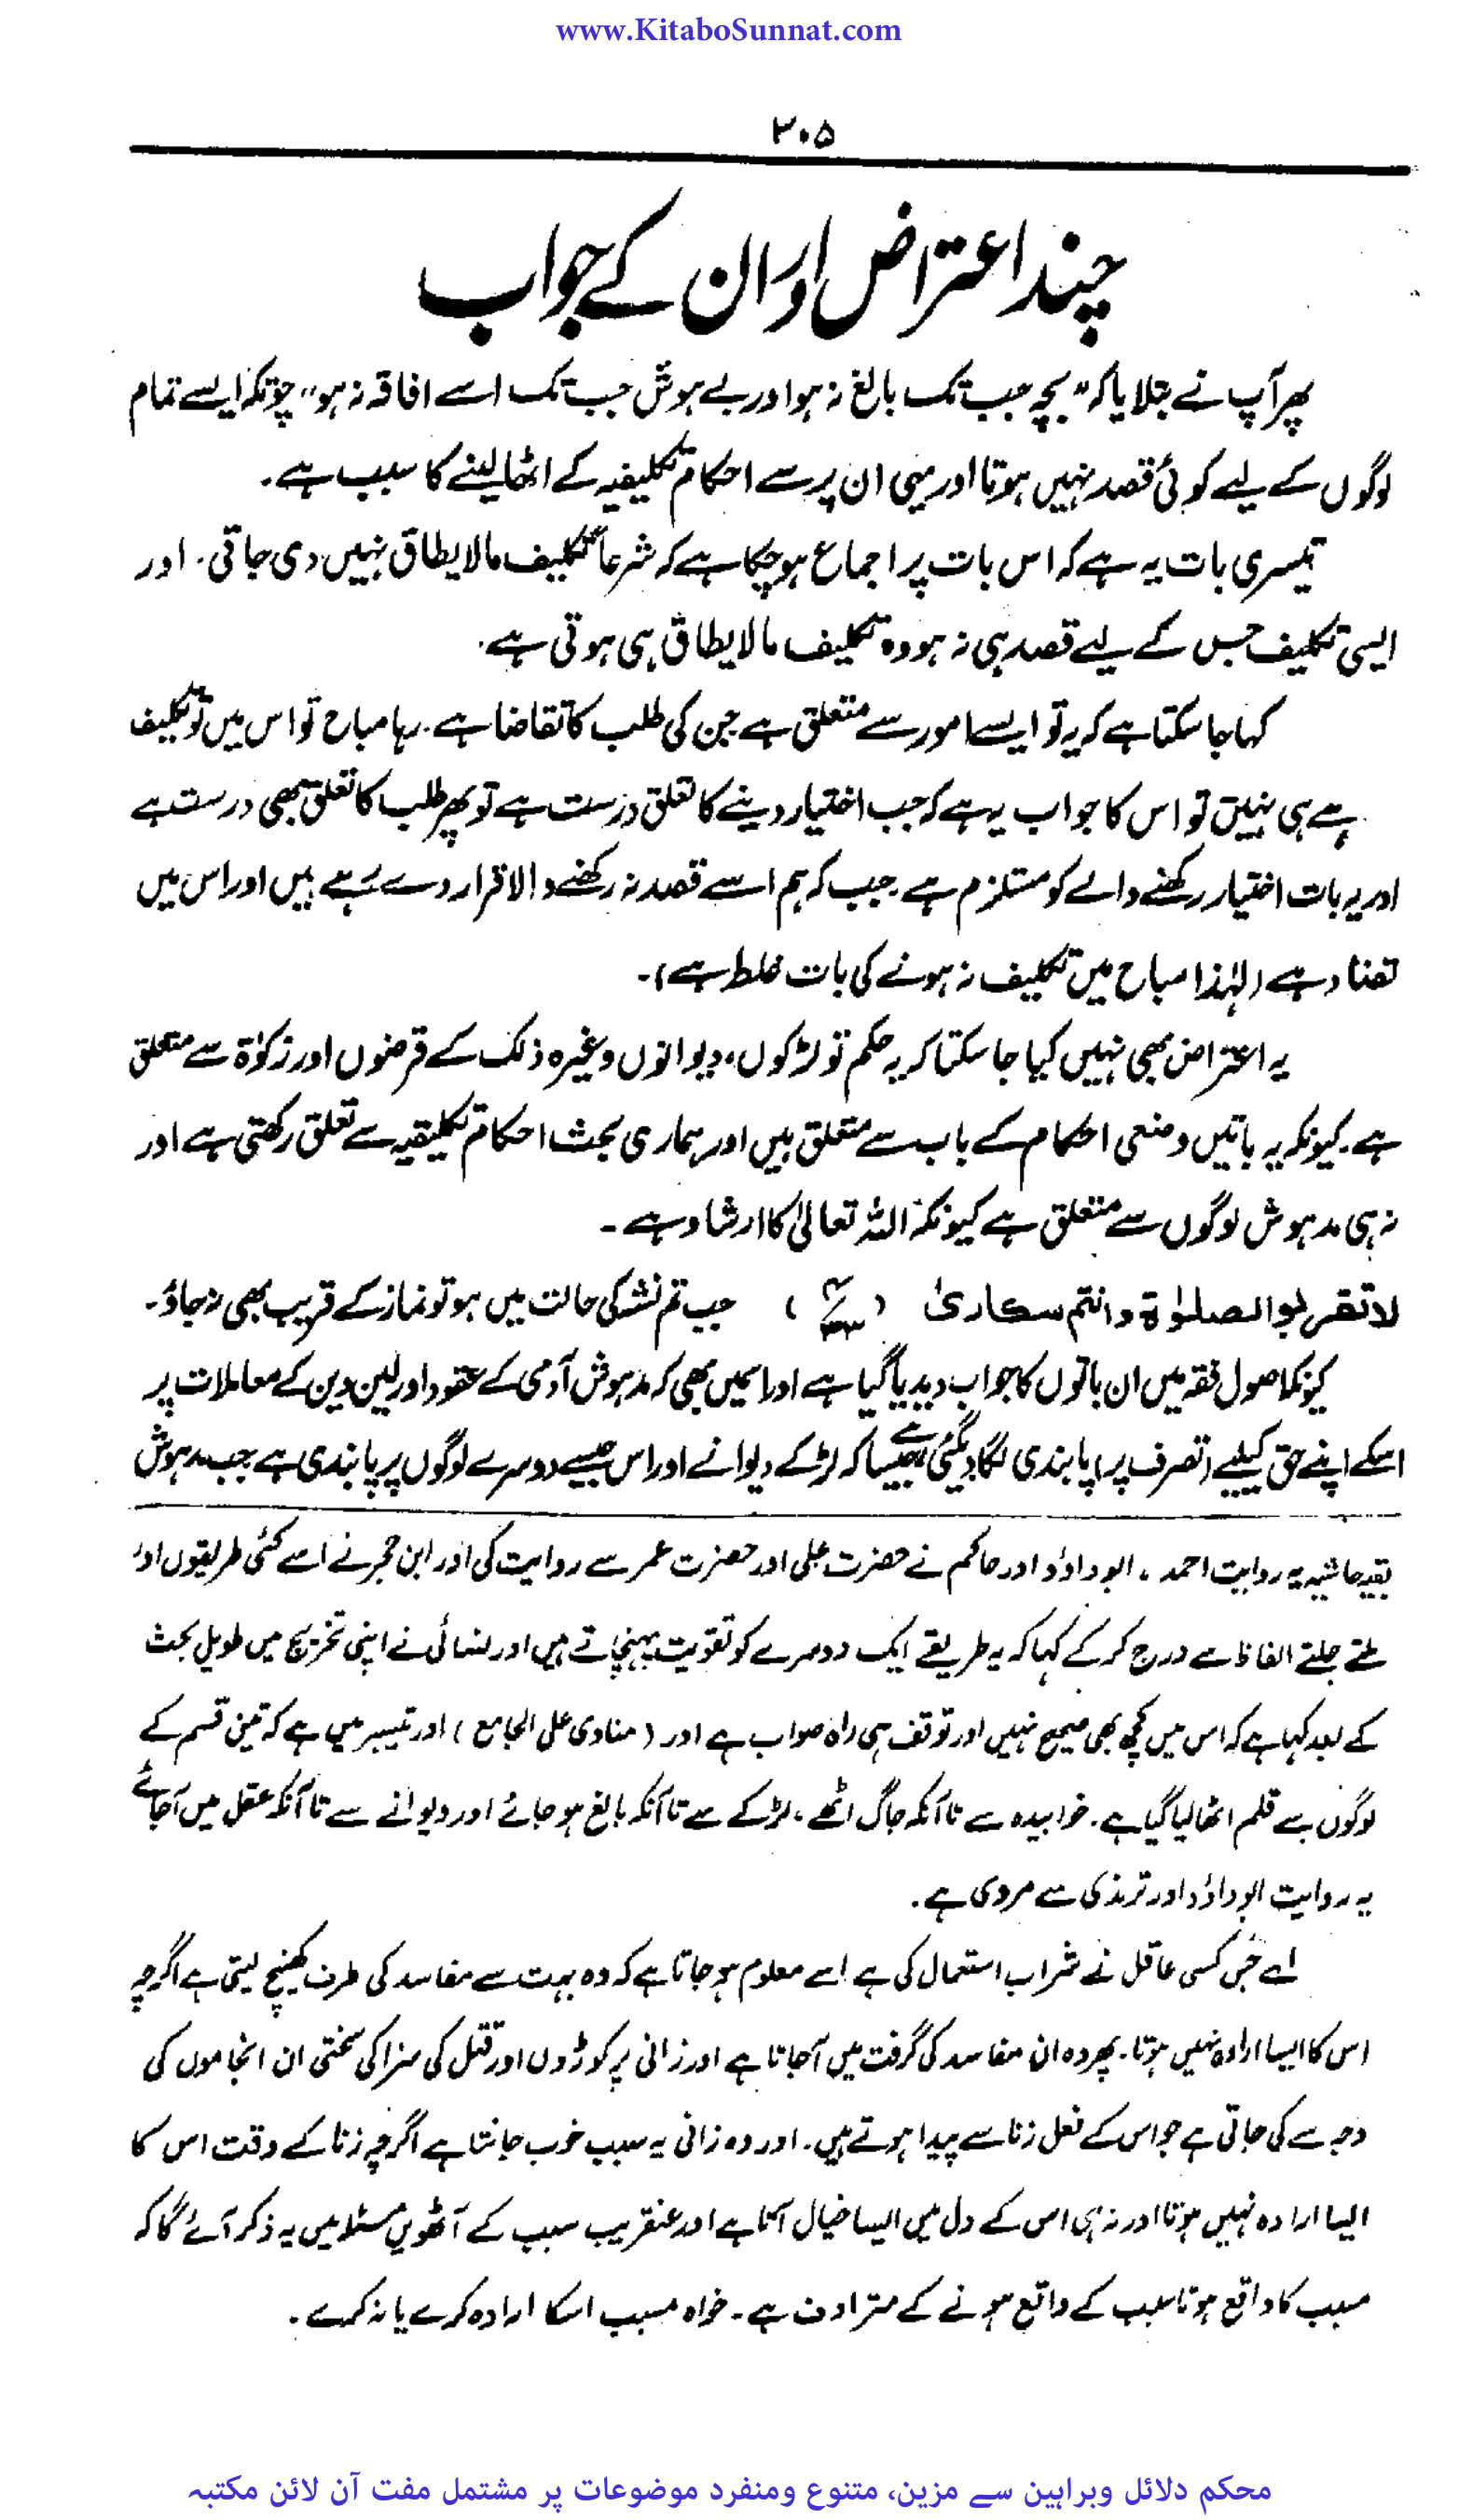 www.KitaboSunnat.com
۲۰۵
چند اعتراض اور ان کے جواب
پھر آپ نے بتلایا کہ "بچے جب تک بالغ نہ ہو اور بے ہوش جب تک اسے افاقہ نہ ہو" چونکہ ایسے تمام
لوگوں کے لیے کوئی قصد نہیں ہوتا اور یہی ان پر سے احکام تکلیفیہ کے اٹھا لینے کا سبب ہے۔
تیسری بات یہ ہے کہ اس بات پر اجماع ہو چکا ہے کہ شرعاً تکلیف مالایطاق نہیں دی جاتی۔ اور
ایسی تکلیف جس کے لیے قصد ہی نہ ہو وہ تکلیف مالایطاق ہی ہوتی ہے۔
کہا جا سکتا ہے کہ یہ تو ایسے امور سے متعلق ہے جن کی طلب کا تقاضا ہے۔ رہا مباح تو اس میں تو تکلیف
ہے ہی نہیں تو اس کا جواب یہ ہے کہ جب اختیار دینے کا تعلق درست ہے تو پھر طلب کا تعلق بھی درست ہے
اور یہ بات اختیار رکھنے والے کو مستلزم ہے جب کہ ہم اسے قصد نہ رکھنے والا قرار دے رہے ہیں اور اس میں
تضاد ہے (لہٰذا مباح میں تکلیف نہ ہونے کی بات غلط ہے)۔
یہ اعتراض بھی نہیں کیا جا سکتا کہ یہ حکم تو لڑکوں، دیوانوں وغیرہ ذلک کے قرضوں اور زکوٰۃ سے متعلق
ہے۔ کیونکہ یہ باتیں وضعی احکام کے باب سے متعلق ہیں اور ہماری بحث احکام تکلیفیہ سے تعلق رکھتی ہے اور
نہ ہی مدہوش لوگوں سے متعلق ہے کیونکہ اللہ تعالیٰ کا ارشاد ہے ۔
لا تقربوا الصلوٰۃ وانتم سکاریٰ ( ۴/۴۳ ) جب تم نشہ کی حالت میں ہو تو نماز کے قریب بھی نہ جاؤ۔
کیونکہ اصول فقہ میں ان باتوں کا جواب دیدیا گیا ہے اور اسمیں بھی کہ مدہوش آدمی کے عقود اور لین دین کے معاملات پر
اسکے اپنے حق کیلیے (تصرف پر) پابندی لگا دیگئی ہے جیسا کہ لڑکے دیوانے اور اس جیسے دوسرے لوگوں پر پابندی ہے جب مدہوش
بقیہ حاشیہ یہ روایت احمد، ابوداؤد اور حاکم نے حضرت علی اور حضرت عمر سے روایت کی اور ابن حجر نے اسے کئی طریقوں اور
ملتے جلتے الفاظ سے درج کر کے کہا کہ یہ طریقے ایک دوسرے کو تقویت پہنچاتے ہیں اور نسائی نے اپنی تخریج میں طویل بحث
کے بعد کہا ہے کہ اس میں کچھ بھی صحیح نہیں اور توقف ہی راہ صواب ہے اور (مناوی علی الجامع) اور تیسیر میں ہے کہ تین قسم کے
لوگوں سے قلم اٹھا لیا گیا ہے۔ خوابیدہ سے تا آنکہ جاگ اٹھے، لڑکے سے تا آنکہ بالغ ہو جائے اور دیوانے سے تا آنکہ عقل میں آجائے
یہ روایت ابوداؤد اور ترمذی سے مروی ہے۔
اے جس کسی عاقل نے شراب استعمال کی ہے اسے معلوم ہو جاتا ہے کہ وہ بہت سے مفاسد کی طرف کھینچ لیتی ہے اگرچہ
اس کا ایسا ارادہ نہیں ہوتا۔ پھر وہ ان مفاسد کی گرفت میں آجاتا ہے اور زانی پر کوڑوں اور قتل کی سزا کی سختی ان انجاموں کی
وجہ سے کی جاتی ہے جو اس کے فعل زنا سے پیدا ہوتے ہیں۔ اور وہ زانی یہ سبب خوب جانتا ہے اگرچہ زنا کے وقت اس کا
ایسا ارادہ نہیں ہوتا اور نہ ہی اس کے دل میں ایسا خیال آتا ہے اور عنقریب سبب کے آٹھویں مسئلہ میں یہ ذکر آئے گا کہ
مسبب کا واقع ہونا سبب کے واقع ہونے کے مترادف ہے۔ خواہ مسبب اسکا ارادہ کرے یا نہ کرے ۔
محکم دلائل وبراہین سے مزین، متنوع ومنفرد موضوعات پر مشتمل مفت آن لائن مکتبہ